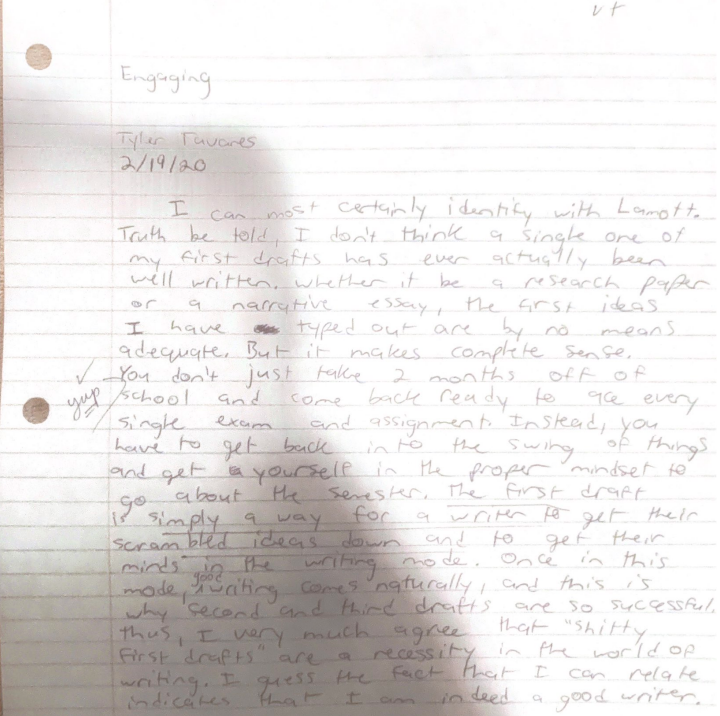 v+
Engaging
Tyler Tavares
2/19/20
I can most certainly identify with Lamott.
Truth be told, I don't think a single one of
my first drafts has ever actually been
well written. Whether it be a research paper
or a narrative essay, the first ideas
I have typed out are by no means
adequate. But it makes complete sense.
You don't just take 2 months off of
yup
school and come back ready to ace every
single exam and assignment. Instead, you
have to get back into the swing of things
and get yourself in the proper mindset to
go about the semester. The first draft
is simply a way for a writer to get their
scrambled ideas down and to get their
minds in the writing mode. Once in this
mode, good writing comes naturally, and this is
why second and third drafts are so successful.
Thus, I very much agree that "shitty
first drafts" are a necessity in the world of
writing. I guess the fact that I can relate
indicates that I am indeed a good writer.